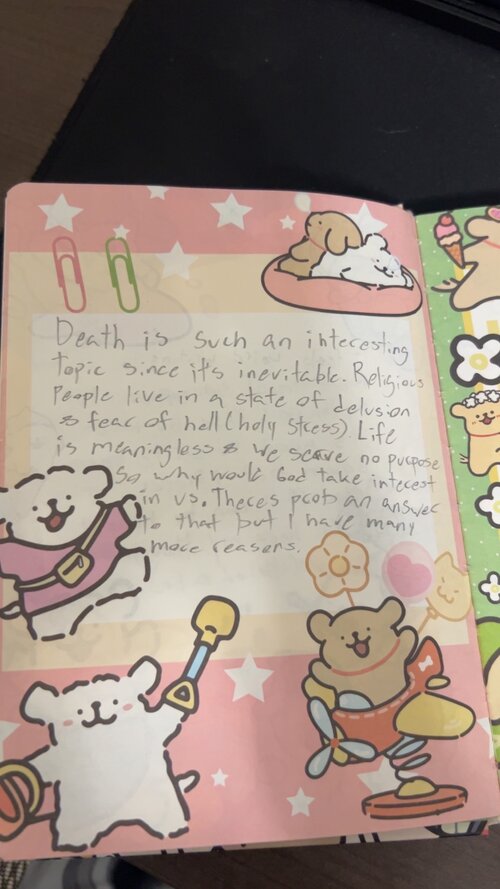 Death is such an interesting
topic since it's inevitable. Religious
People live in a state of delusion
& fear of hell (holy stress). Life
is meaningless & we serve no purpose
So why would God take interest
in us. Theres prob an answer
to that but I have many
more reasons.